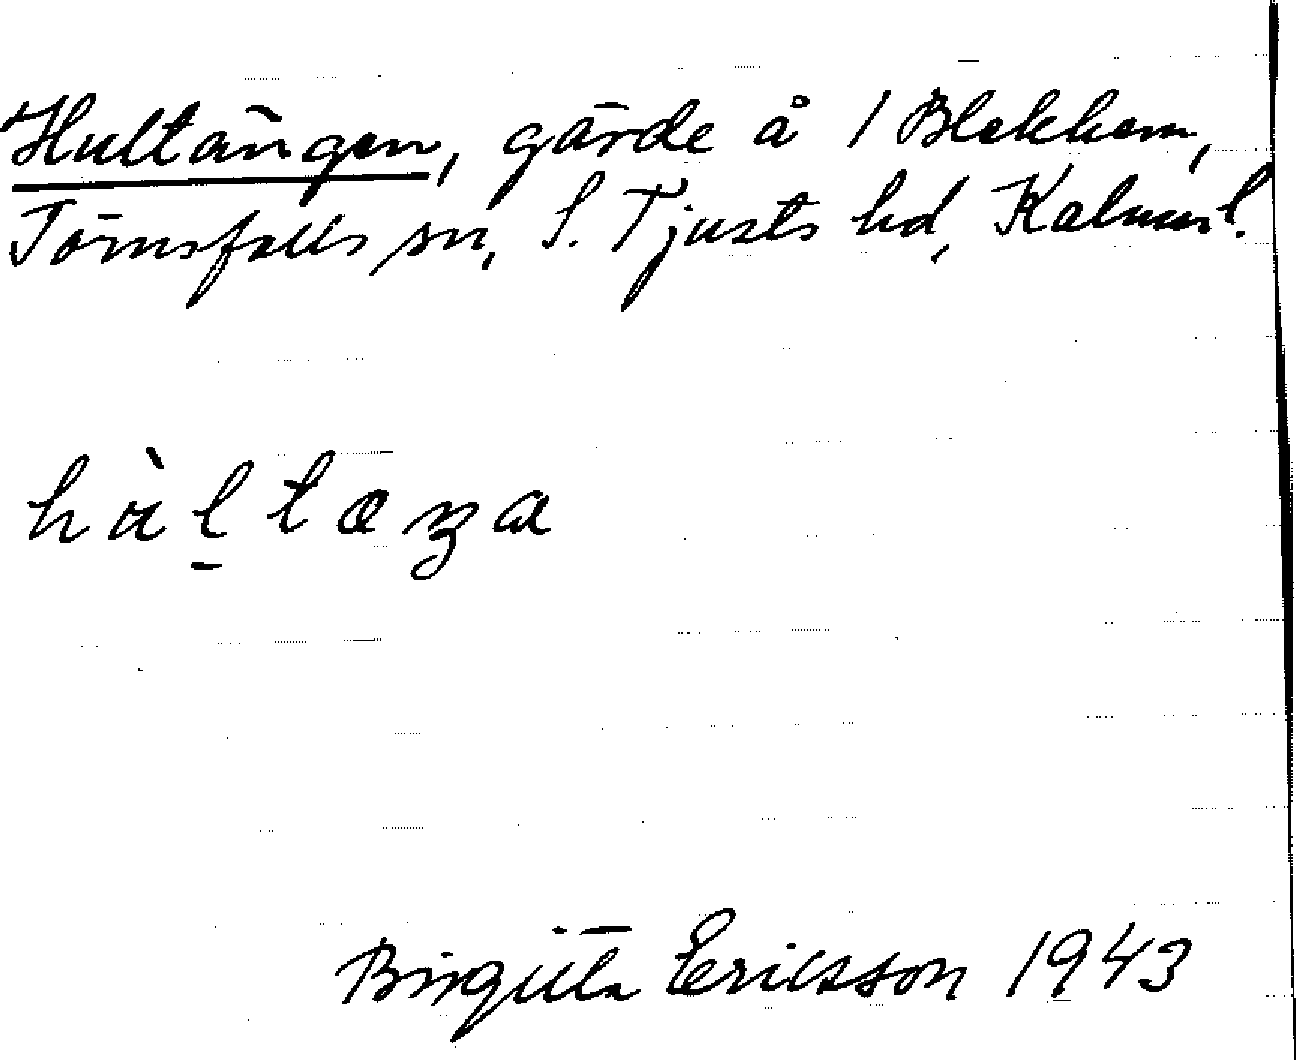 Hultängen, gärde å 1 Blekhem,
Törnsfalls sn, S. Tjusts hd, Kalmar l.
hùl̠tæŋa
Birgitta Ericsson 1943